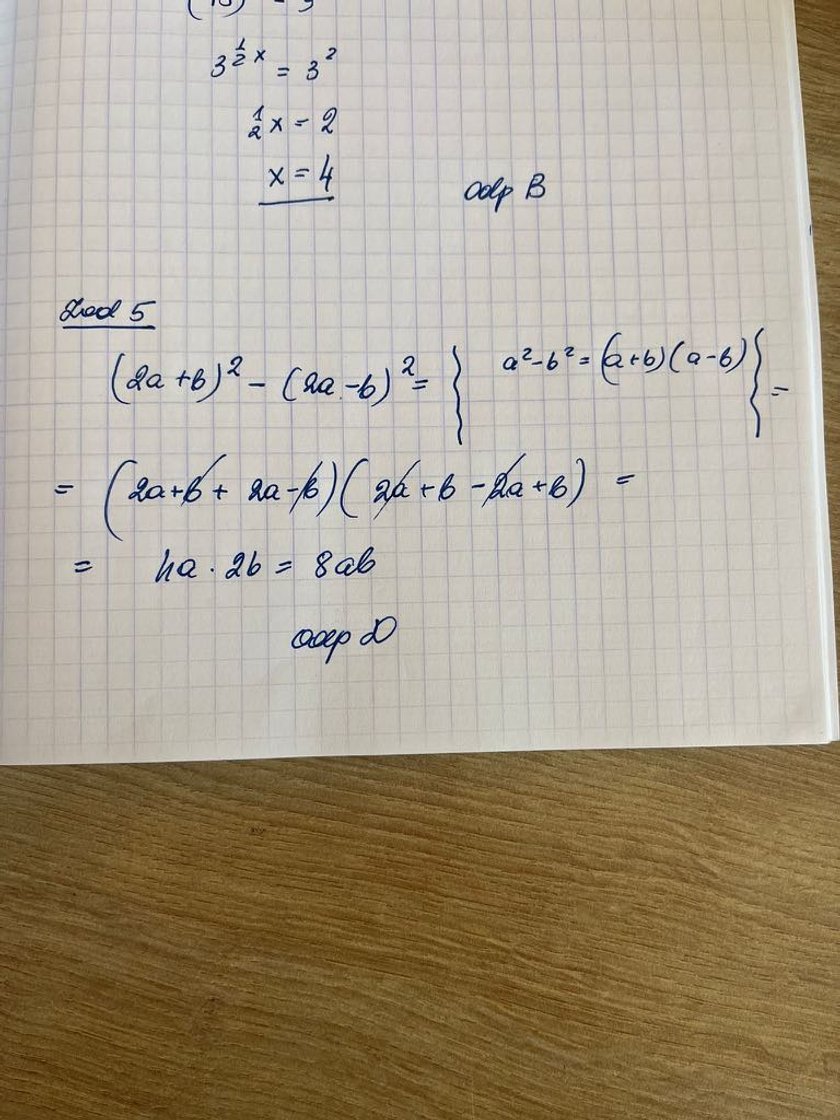 3^{\frac{1}{2}x} = 3^2
\frac{1}{2}x = 2
x = 4
Odp B
Zad 5
(2a+b)^2 - (2a-b)^2 = { a^2-b^2 = (a+b)(a-b) } =
= (2a+b+2a-b)(2a+b-2a+b) =
= 4a · 2b = 8ab
odp D